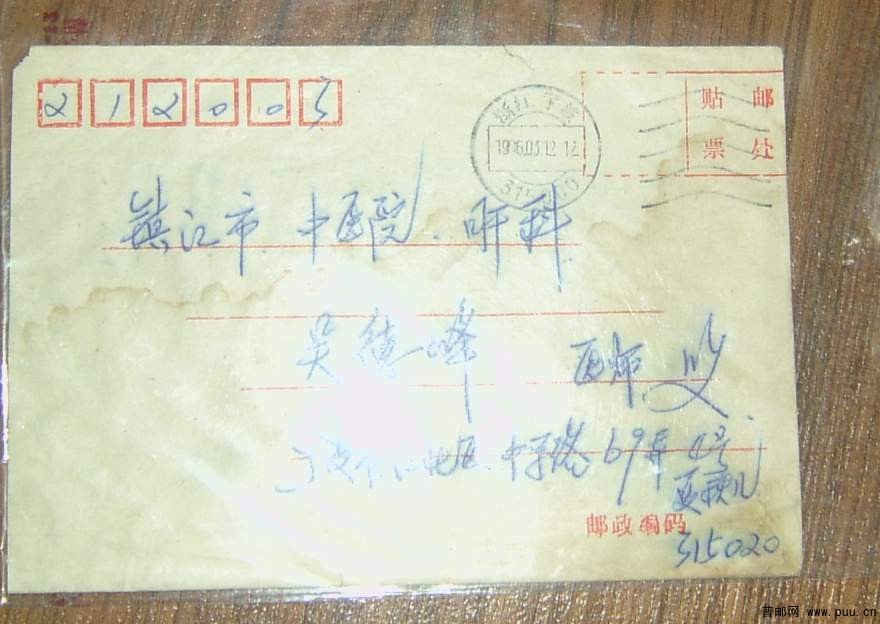 212005
浙江 宁波
1996.03.12 12
贴 邮
票 处
镇江市 中医院 肝科
吴 峰 医师 收
宁波市江北区 中马路 69弄 4号
邮政编码
315020
普邮网 www.puu.cn